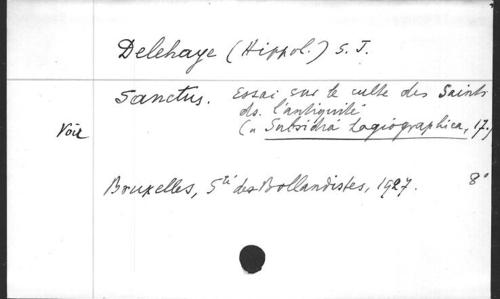 Delehaye (Hippol.) S. J.
Sanctus. Essai sur le culte des Saints
ds. l'antiquité
Voir (" Subsidia hagiographica, 17.)
Bruxelles, Sté des Bollandistes, 1927. 8°